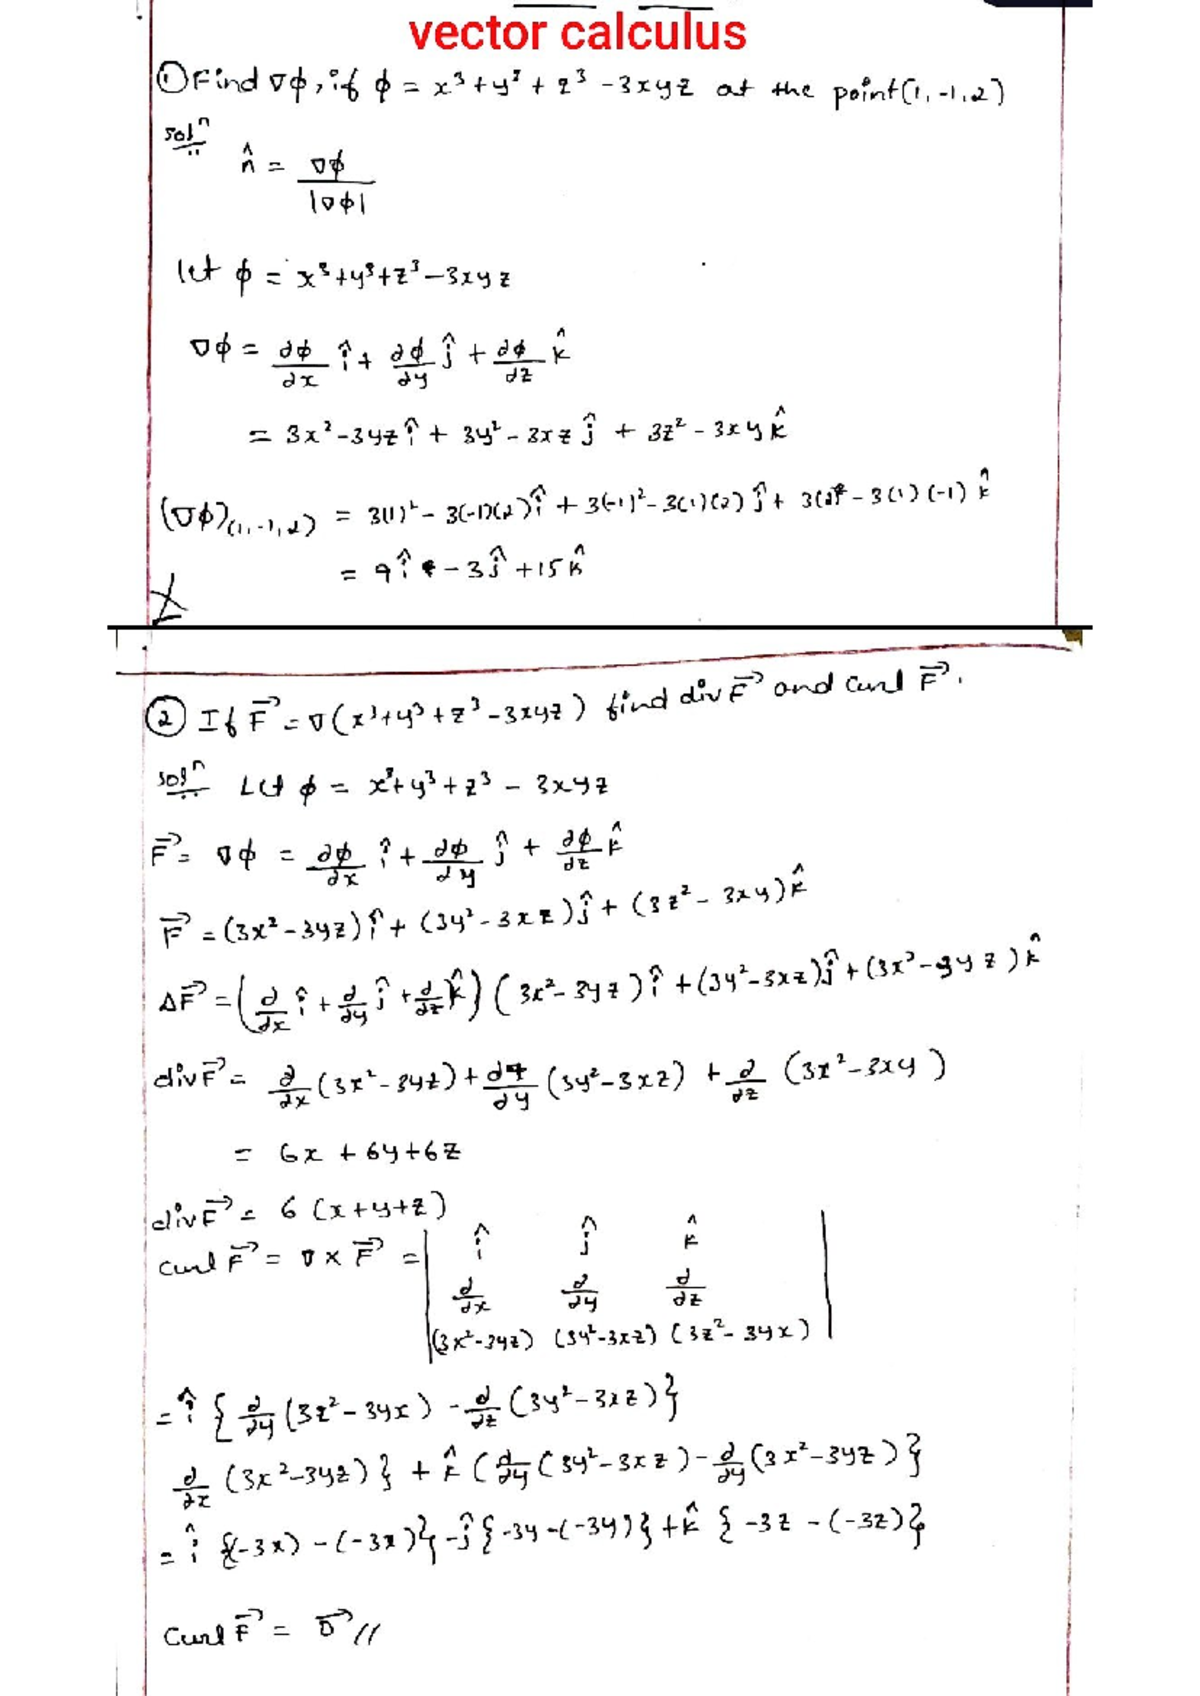 vector calculus
① Find ∇φ, if φ = x³ + y² + z³ - 3xyz at the point (1, -1, 2)
solⁿ
n̂ = ∇φ / |∇φ|
let φ = x³ + y³ + z³ - 3xyz
∇φ = ∂φ/∂x î + ∂φ/∂y ĵ + ∂φ/∂z k̂
= 3x² - 3yz î + 3y² - 3xz ĵ + 3z² - 3xy k̂
(∇φ)(1, -1, 2) = 3(1)² - 3(-1)(2) î + 3(-1)² - 3(1)(2) ĵ + 3(2)² - 3(1)(-1) k̂
= 9 î - 3 ĵ + 15 k̂
② If F⃗ = ∇(x³ + y³ + z³ - 3xyz) find div F⃗ and curl F⃗.
solⁿ Let φ = x³ + y³ + z³ - 3xyz
F⃗ = ∇φ = ∂φ/∂x î + ∂φ/∂y ĵ + ∂φ/∂z k̂
F⃗ = (3x² - 3yz) î + (3y² - 3xz) ĵ + (3z² - 3xy) k̂
ΔF⃗ = (∂/∂x î + ∂/∂y ĵ + ∂/∂z k̂) (3x² - 3yz) î + (3y² - 3xz) ĵ + (3x² - 3yz) k̂
div F⃗ = ∂/∂x (3x² - 3yz) + ∂/∂y (3y² - 3xz) + ∂/∂z (3z² - 3xy)
= 6x + 6y + 6z
div F⃗ = 6 (x + y + z)
curl F⃗ = ∇ × F⃗ = | î ĵ k̂
∂/∂x ∂/∂y ∂/∂z
(3x² - 3yz) (3y² - 3xz) (3z² - 3yx) |
= î { ∂/∂y (3z² - 3yx) - ∂/∂z (3y² - 3xz) }
∂/∂z (3x² - 3yz) } + k̂ ( ∂/∂y (3y² - 3xz) - ∂/∂y (3x² - 3yz) }
= î {(-3x) - (-3x)} - ĵ {-3y - (-3y)} + k̂ {-3z - (-3z)}
Curl F⃗ = 0⃗ //